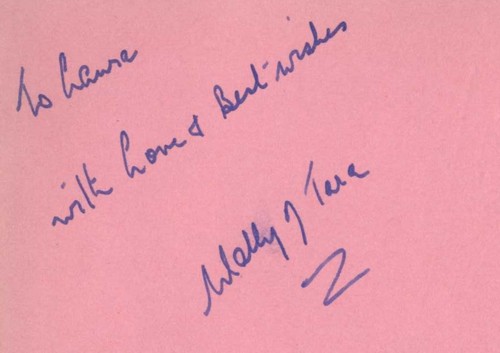 To Laura
with Love & Best-wishes
Wally of Tara